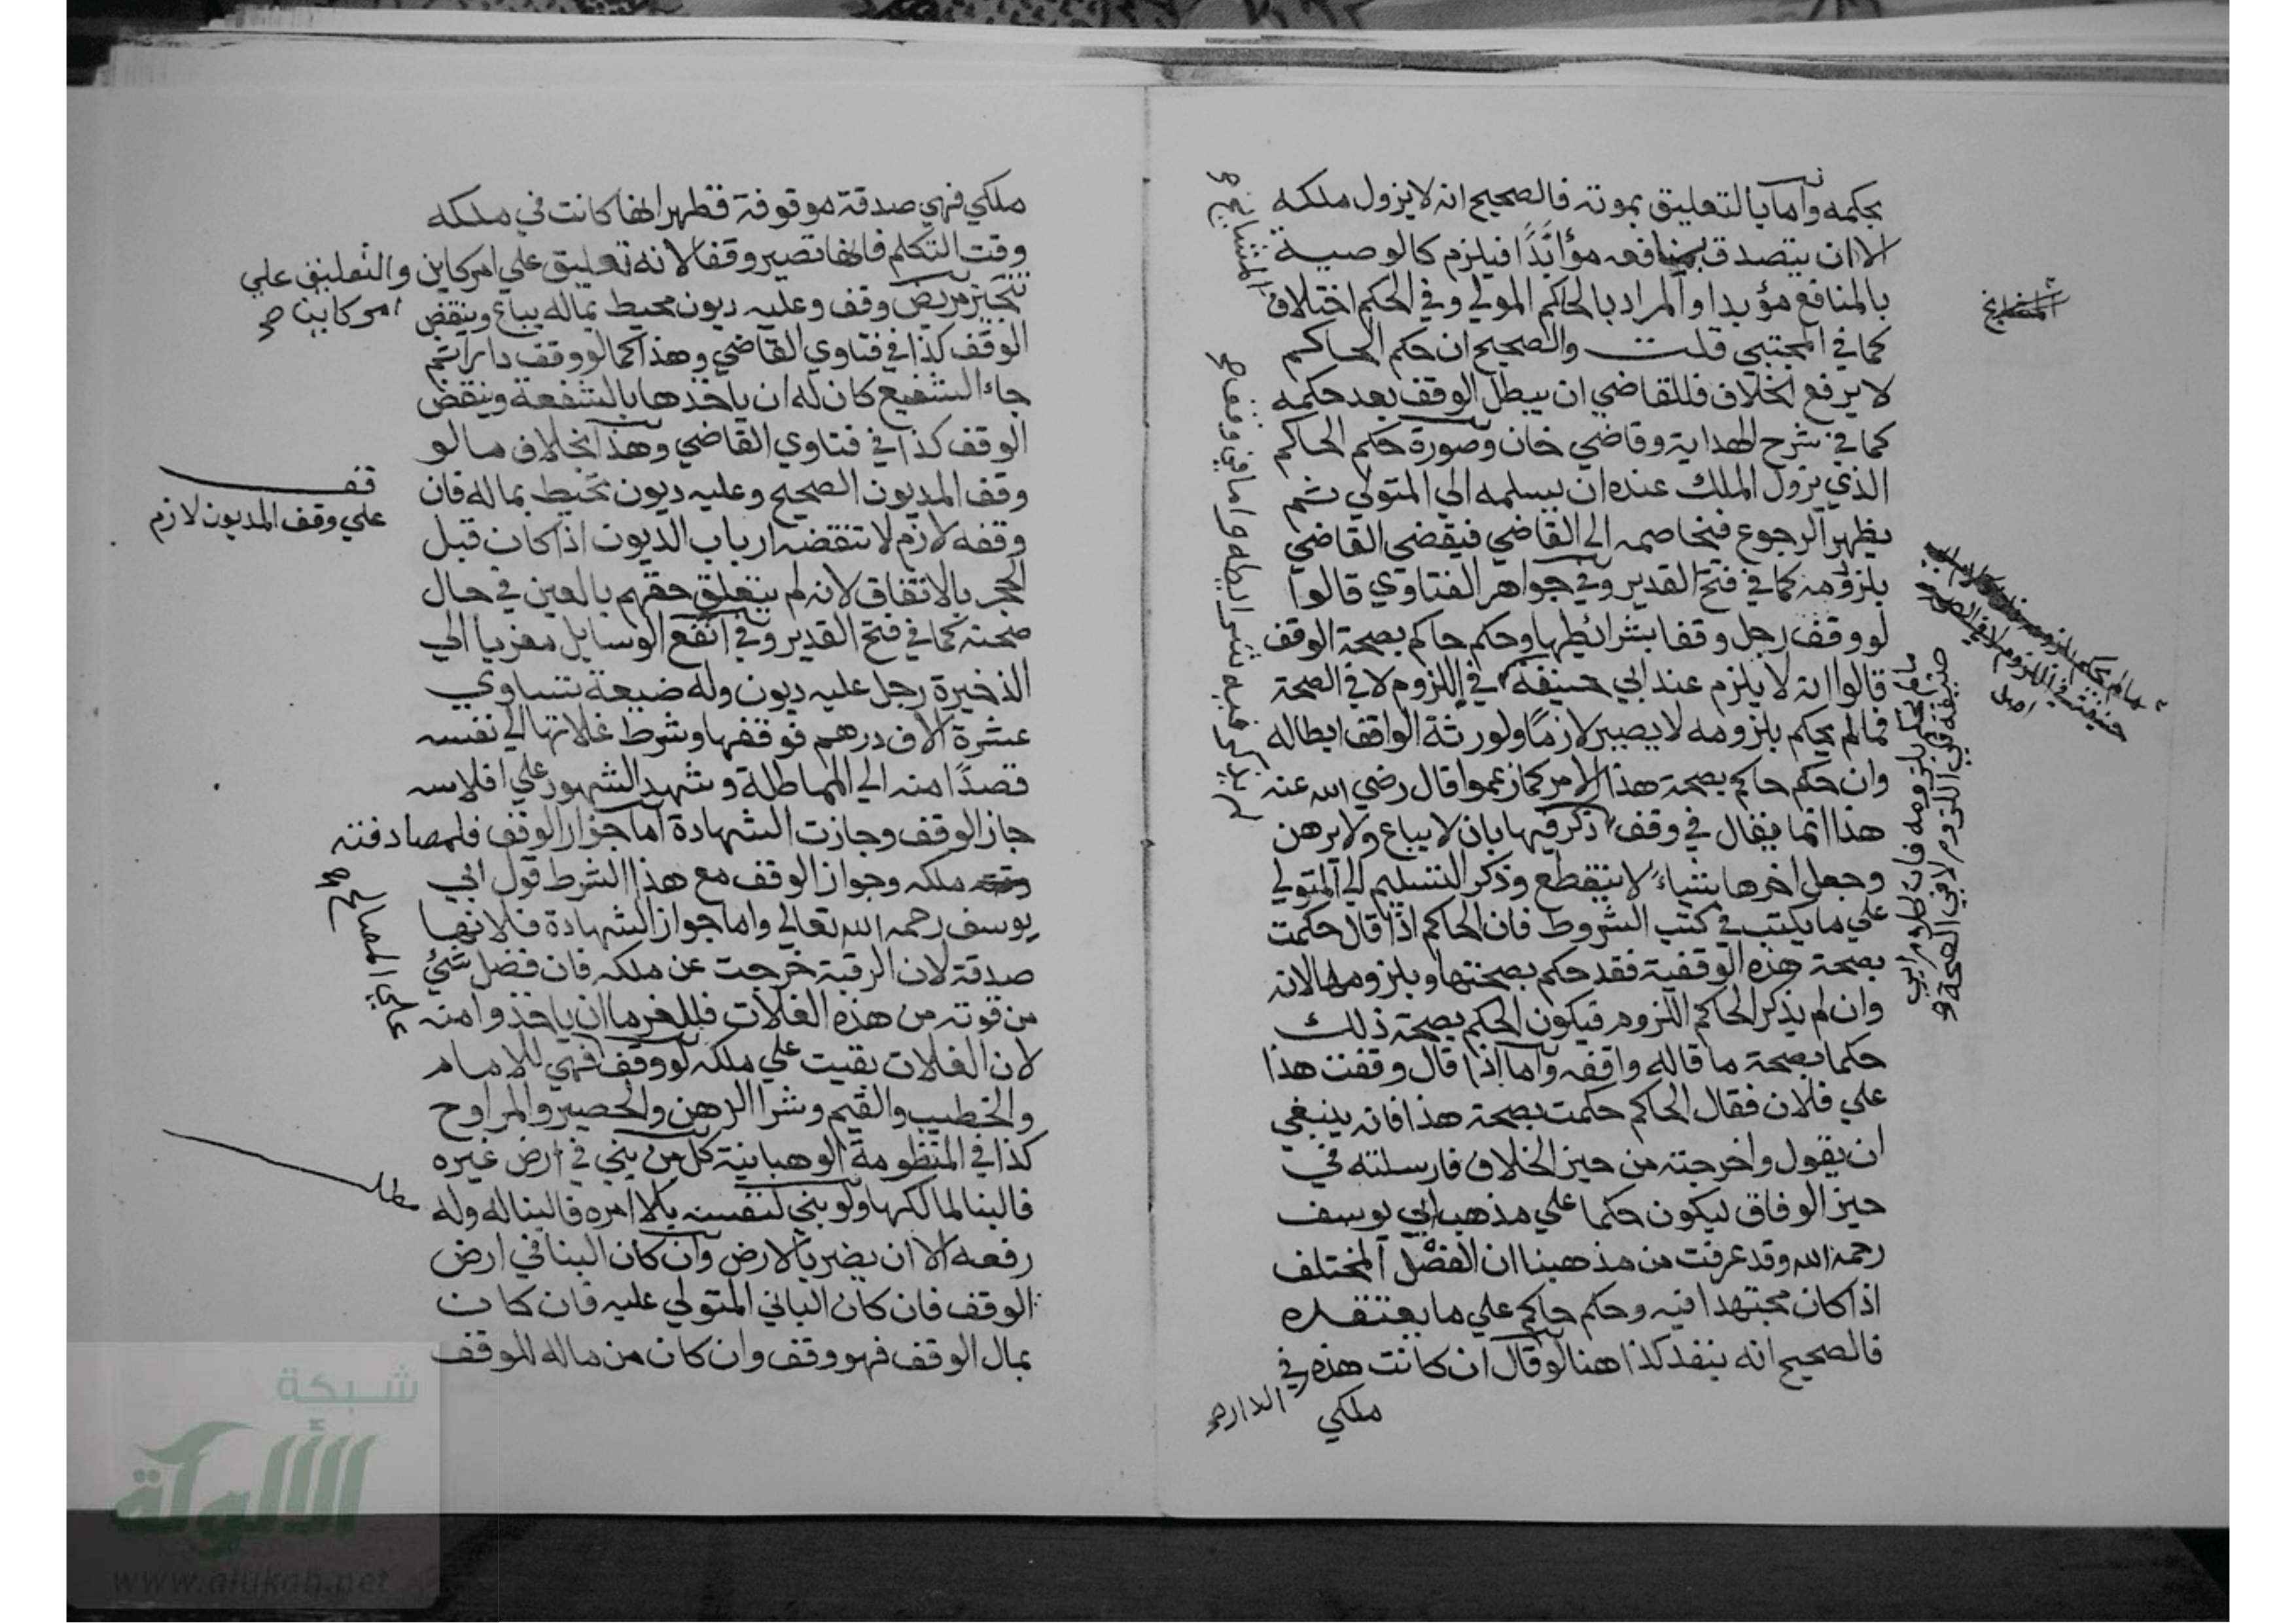 بحكمه واما بالتعليق بموته فالصحيح انه لا يزول ملكه
الا ان يتصدق بمنافعه مؤابدًا فيلزم كالوصية
بالمنافع مؤبدا والمراد بالحاكم المولي وفي الحكم اختلاف
المشايخ صح
كما في المجتبي قلت والصحيح ان حكم الحاكم
لا يرفع الخلاف فللقاضي ان يبطل الوقف بعد حكمه
كما في شرح الهداية وقاضي خان وصورة حكم الحاكم
الذي يزول الملك عنده ان يسلمه الي المتولي ثم
يظهر الرجوع فيخاصمه الي القاضي فيقضي القاضي
بلزومه كما في فتح القدير وفي جواهر الفتاوي قالوا
لو وقف رجل وقفا بشرائطها وحكم حاكم بصحة الوقف
قالوا انه لا يلزم عند ابي حنيفة في اللزوم لا في الصحة
فمالم يحكم بلزومه لا يصير لازمًا ولورثة الواقف ابطاله
وان حكم حاكم بصحة هذا الامر كما زعموا قال رضي الله عنه
هذا انما يقال في وقف ذكر فيها بان لا يباع ولا يرهن
وجعل اخرها بشياءً لا ينقطع وذكر التسليم الي المتولي
علي ما يكتب في كتب الشروط فان الحاكم اذا قال حكمت
بصحة هذه الوقفية فقد حكم بصحتها وبلزومها لانه
وان لم يذكر الحاكم اللزوم فيكون الحكم بصحة ذلك
حكما بصحة ما قاله واقفه واما اذا قال وقفت هذا
علي فلان فقال الحاكم حكمت بصحة هذا فانه ينبغي
ان يقول واخرجته من حيز الخلاف فارسلته في
حيز الوفاق ليكون حكما علي مذهب ابي يوسف
رحمه الله وقد عرفت من مذهبنا ان الفصل المختلف
اذا كان مجتهدا فيه وحكم حاكم علي ما يعتقده
فالصحيح انه ينفد كذا هنا لو قال ان كانت هذه في
الدار صح
ملكي
لم يذكر فيه شرايطه واما في وقف صح
المشايخ
مالم يحكم بلزومه فان كلام ابي
حنيفة في اللزوم لا في الصحة
اصل
مالم يحكم بلزومه فان كلام ابي
حنيفة في اللزوم لا في الصحة صح
ملكي فهي صدقة موقوفة فظهر انها كانت في ملكه
وقت التكلم فانها تصير وقفا لانه تعليق علي امر كاين والتعليق علي
امر كاين صح
تنجيز مريض وقف وعليه ديون محيط بماله يباع وينقض
الوقف كذا في فتاوي القاضي وهذا كما لو وقف دارا ثم
جاء الشفيع كان له ان ياخذها بالشفعة وينقض
الوقف كذا في فتاوي القاضي وهذا بخلاف ما لو
وقف المديون الصحيح وعليه ديون تحيط بماله فان
وقفه لازم لا تنقضه ارباب الديون اذا كان قبل
قف
علي وقف المديون لازم
الحجر بالاتفاق لانه لم يتعلق حقهم بالعين في حال
صحته كما في فتح القدير وفي انفع الوسايل معزيا الي
الذخيرة رجل عليه ديون وله ضيعة تساوي
عشرة الاف درهم فوقفها وشرط غلاتها الي نفسه
قصدًا منه الي المماطلة وشهد الشهود علي افلاسه
جاز الوقف وجازت الشهادة اما جواز الوقف فلمصادفته
ملكه وجواز الوقف مع هذا الشرط قول ابي
يوسف رحمه الله تعالي واما جواز الشهادة فلانها
صدقة لان الرقبة خرجت عن ملكه فان فضل شئ
من قوته من هذه الغلات فللغرما ان ياخذوا منه
لان الغلات بقيت علي ملكه لو وقف فهي للامام
والخطيب والقيم وشرا الدهن والحصير والمراوح
علي المصالح صح
كذا في المنظومة الوهبانية كل من بني في ارض غيره
فالبنا لمالكها ولو بني لنفسه بلا امره فالبنا له وله
مطلب
رفعه الا ان يضر بالارض وان كان البنا في ارض
الوقف فان كان الباني المتولي عليه فان كان
بمال الوقف فهو وقف وان كان من ماله للوقف
شبكة
الألوكة
www.alukah.net